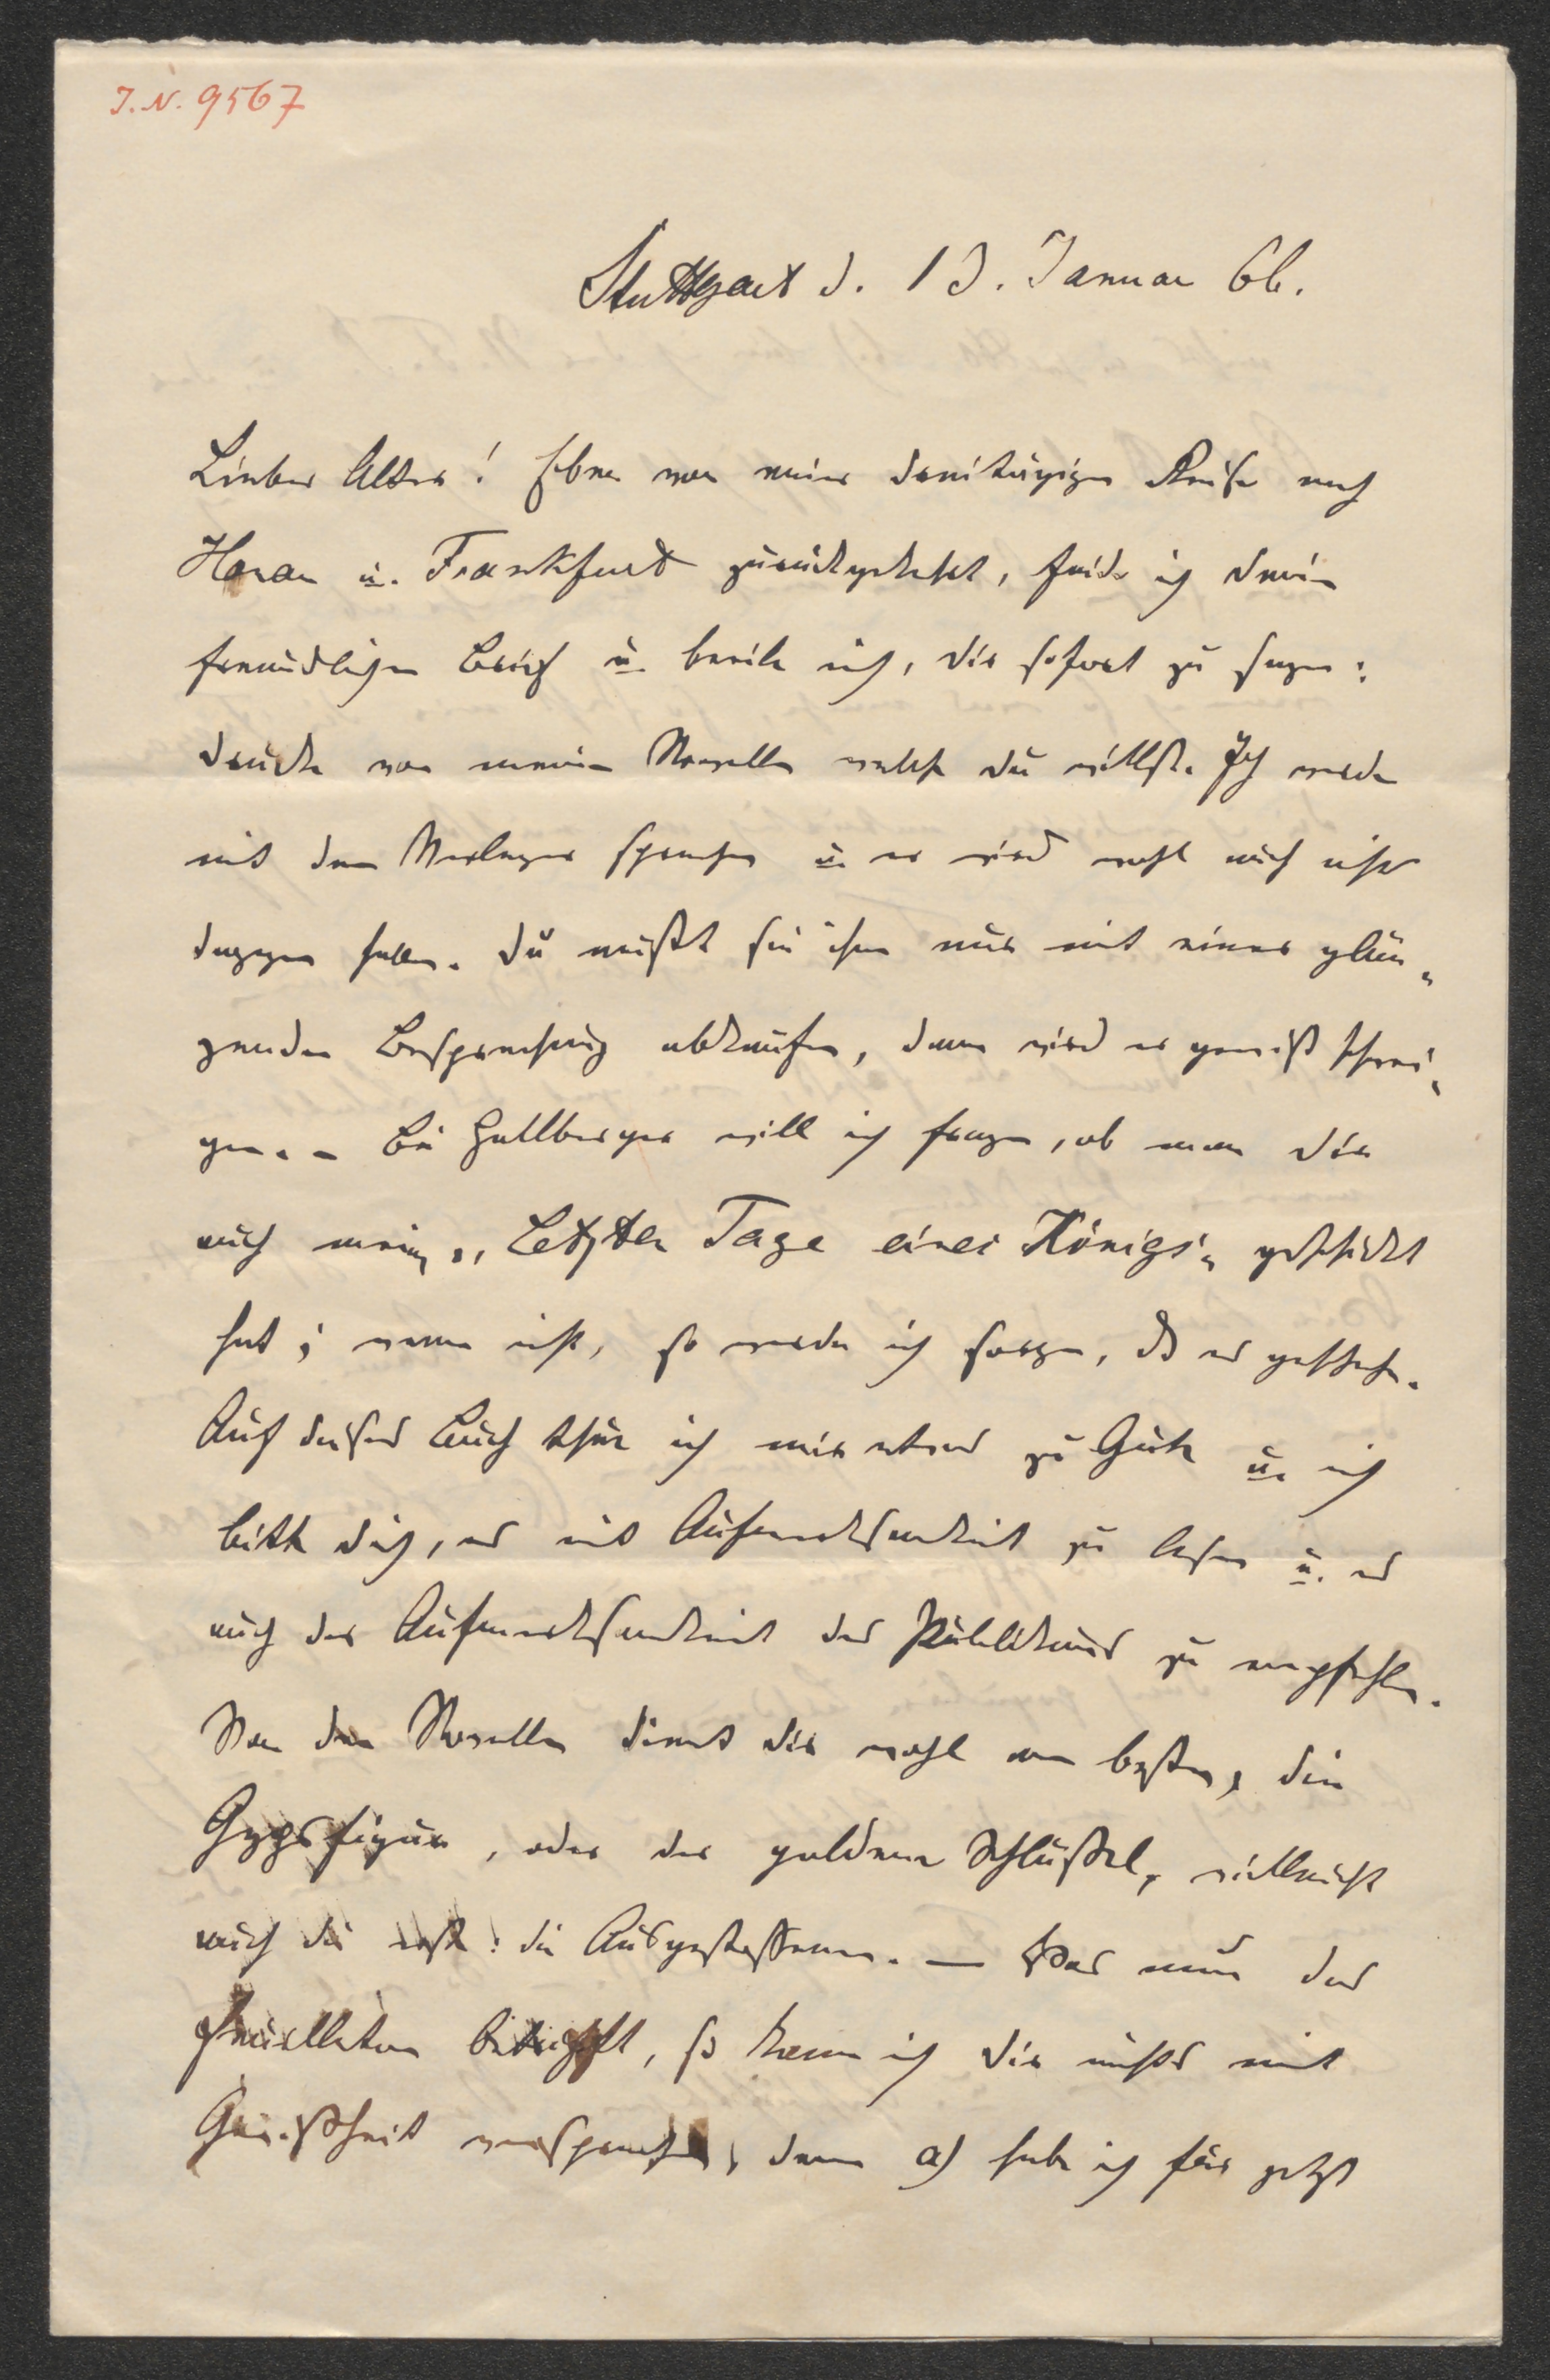 J. N. 9567
Stuttgart d. 13. Januar 66.
Lieber Alter! Eben von meiner dreitägigen Reise nach
Hanau u. Frankfurt zurückgekehrt, finde ich deinen
freundlichen Brief u. beeile mich, dir sofort zu sagen:
drucke von meinen Novellen welche du willst. Ich werde
mit dem Verleger sprechen u. er wird wohl auch nichts
dagegen haben. Du mußt sie ihm nur mit einer glän„
zenden Besprechung abkaufen, dann wird er gewiß schwei„
gen. – Bei Hallberger will ich fragen, ob man dir
auch meine „Letzten Tage eines Königs“ geschickt
hat; wenn nicht, so werde ich sorgen, daß es geschehe.
Auf dieses Buch thue ich mir etwas zu Gute u. ich
bitte dich, es mit Aufmerksamkeit zu lesen u. es
auch der Aufmerksamkeit des Publikums zu empfehlen.
Von den Novellen dient dir wohl am besten, die
Gypsfigur, oder der goldene Schlüßel, vielleicht
auch die erste: die Ausgestoßenen. — Was nun das
Feuilleton betrifft, so kann ich dir nichts mit
Gewißheit versprechen, denn a) habe ich für jetzt